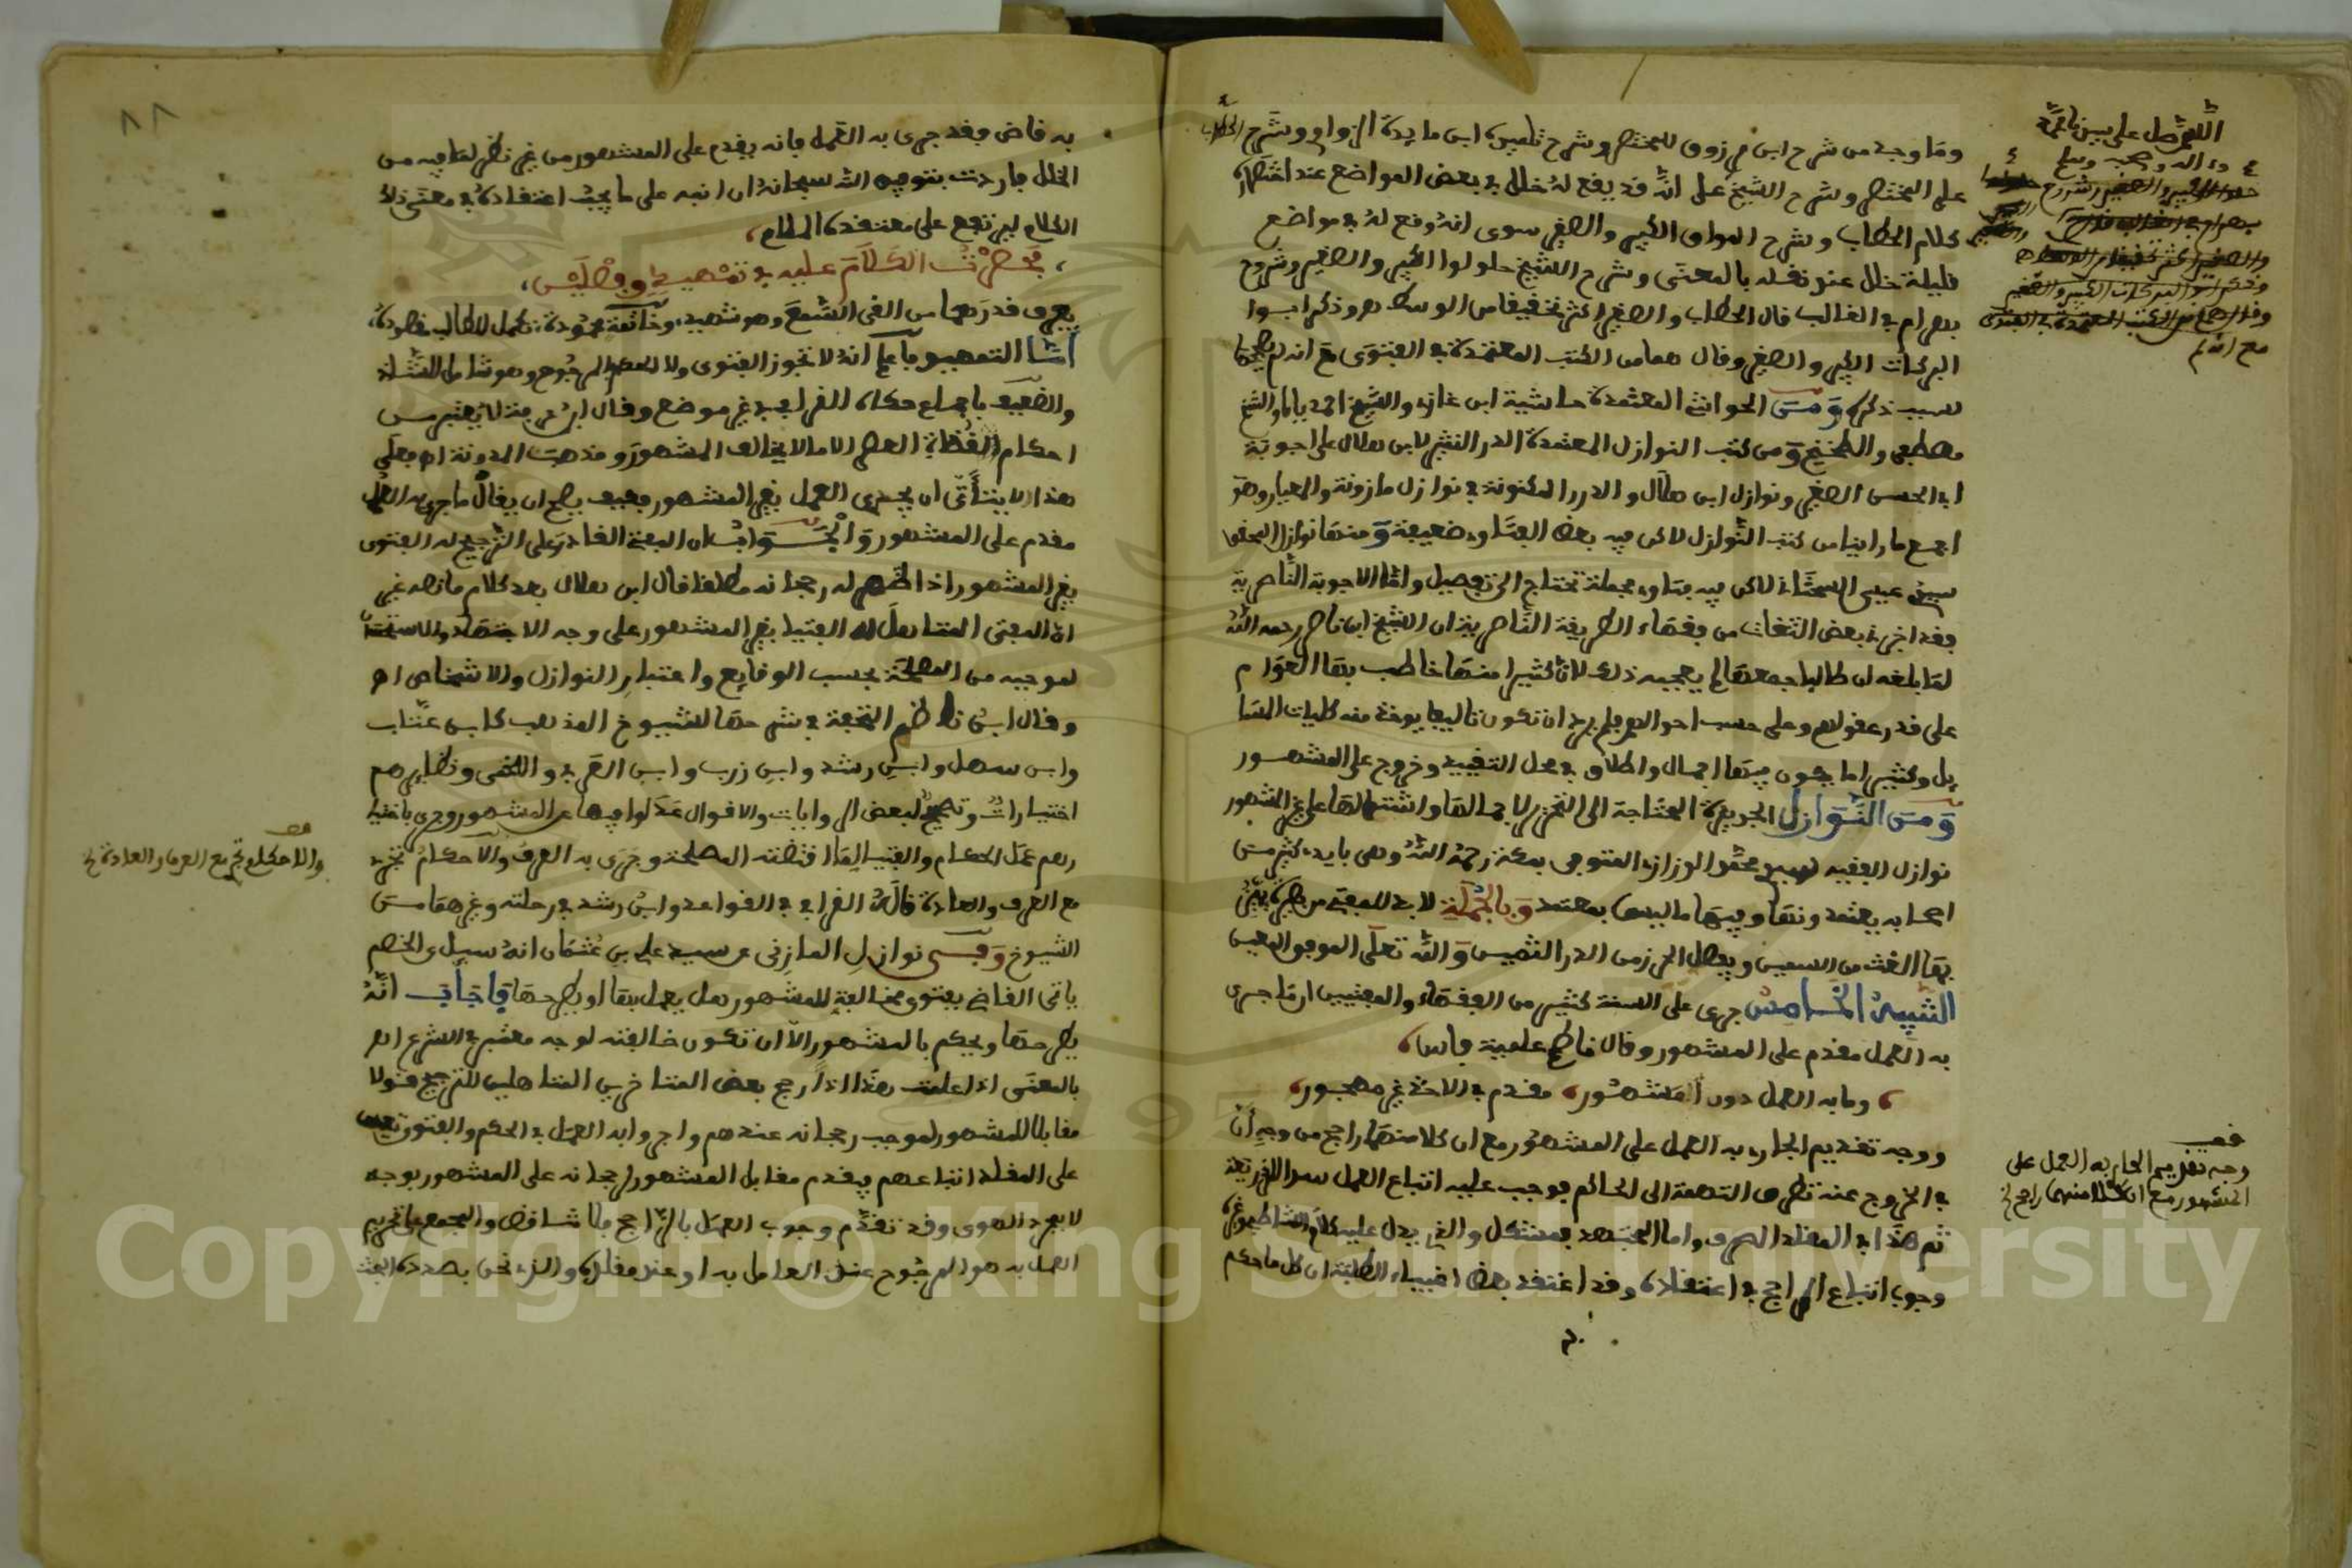 اللهم صل على سيدنا محمد
وءاله وصحبه وسلم
مع انه لم
وما وجد من شرح ابن مرزوق للمختصر وشرح تلميذه ابن مايدة الزواوي وشرح الحطاب
على المختصر وشرح الشيخ علي انه قد يقع له خلل في بعض المواضع عند اختصاره
كلام الحطاب وشرح المواق الكبير والصغير سوى انه وقع له في مواضع
قليلة خلل عند نقله بالمعنى وشرح الشيخ حلولوا الكبير والصغير وشروح
بهرام في الغالب قال الحطاب والصغير اكثر تحقيقا من الوسط هـ وذكر ابوا
البركات الكبير والصغير وقال هما من الكتب المعتمدة في الفتوى مع انه لم
لسبب ذكره ومن الحواشي المعتمدة حاشية ابن غازي والشيخ احمد بابا والشيخ
مصطفى والطخيخي ومن كتب النوازل المعتمدة الدر النثير لابن هلال على اجوبة
ابي الحسن الصغير ونوازل ابن هلال والدرر المكنونة في نوازل مازونة والمعيار وهو
اجمع ما راينا من كتب النوازل لاكن فيه بعض الفتاوي ضعيفة ومنها نوازل المحقق
سيدي عيسى السجتاني لاكن فيه فتاوي مجملة تحتاج الى تفصيل واما الاجوبة الناصرية
فقد اخبرني بعض الثقات من فقهاء الطريقة الناصرية ان الشيخ ابن ناصر رحمه الله
لما بلغه ان طالبا جمعها لم يعجبه ذلك لان كثيرا منها خاطب بها العوام
على قدر عقولهم وعلى حسب احوالهم فلم يرد ان تكون تاليفا يوخذ منه كليات المسا
يل وكثيرا ما يكون فيها اجمال واطلاق في محل التقييد وخروج على المشهور
ومن النوازل الجديرة المحتاجة الى التحرير لاجمالها واشتمالها على غير المشهور
نوازل الفقيه سيدي محمد الورزازي المتوفى بمكة رحمه الله وهي بايدي كثير من
اصحابه يعتمدونها وفيها ما ليس بمعتمد وبالجملة لا بد للمفتي من
بها الغث من السمين ويفصل الخرز من الدر الثمين والله تعلى الموفق المعين
التنبيه الخامس جرى على السنة كثير من الفقهاء والمفتيين ان ما جرى
به العمل مقدم على المشهور وقال ناظم عملية فاس
وما به العمل دون المشهور مقدم في الاخذ غير مهجور
ووجه تقديم الجاري به العمل على المشهور مع ان كلا منهما راجح من وجه ان
في الخروج عنه تطرق التهمة الى الحاكم فوجب عليه اتباع العمل سدا للذريعة
ثم هذا في المقلد الصرف واما المجتهد فمشكل والذي يدل عليه كلام الشاطبي وغيره
وجوب اتباع الراجح في اعتقاده وقد اعتقد بعض اغبياء الطلبة ان كل ما حكم
قف
وجه تقديم الجاري به العمل على
المشهور مع ان كلا منهما راجح الخ
به قاض وقد جرى به العمل فانه يقدم على المشهور من غير نظر لما فيه من
الخلل فاردت بتوفيق الله سبحانه ان انبه على ما يجب اعتقاده في معنى ذلك
الكلام ليرتفع على معتقده الملام
فحصرت الكلام عليه في تمهيد وفصلين
يعرف قدرهما من القى السمع وهو شهيد وخاتمة محمودة تكمل للطالب مقصوده
اما التمهيد فاعلم انه لا تجوز الفتوى ولا الحكم بالمرجوح وهو شامل للشاذ
والضعيف باجماع حكاه القرافي في غير موضع وقال ابن عرفة لا يعتبر من
احكام قضاة العصر الا ما لا يخالف المشهور ومذهب المدونة اهـ فعلى
هذا لا يتاتى ان يجري العمل بغير المشهور فكيف يصح ان يقال ما جرى به العمل
مقدم على المشهور والجواب ان المفتي القادر على الترجيح له الفتوى
بغير المشهور اذا ظهر له رجحانه مطلقا قال ابن هلال بعد كلام ما نصه غير
ان المفتي المتاهل له الفتيا بغير المشهور على وجه الاجتهاد والاستحسان
لموجبه من المصلحة بحسب الوقايع واعتبار النوازل والاشخاص اهـ
وقال ابن ناظم التحفة في شرحها للشيوخ المذهب كابن عتاب
وابن سهل وابن رشد وابن زرب وابن العربي واللخمي ونظايرهم
اختيارات وتصحيح لبعض الروايات والاقوال عدلوا فيها عن المشهور وجرى باختيا
رهم عمل الحكام والفتيا لما اقتضته المصلحة وجرى به العرف والاحكام تجري
مع العرف والعادة قاله القرافي في القواعد وابن رشد في رحلته وغيرهما من
الشيوخ وفي نوازل المازني عن سيدي علي بن عثمان انه سيل عن الخصم
ياتي القاضي بفتوى مخالفة للمشهور هل يعمل بها او يطرحها فاجاب انه
يطرحها ويحكم بالمشهور الا ان تكون خالفته لوجه معتبر في الشرع اهـ
بالمعنى اذا علمت هذا فاذا رجح بعض المتاخرين المتاهلين للترجيح قولا
مقابلا للمشهور لموجب رجحانه عندهم واجروا به العمل في الحكم والفتوى تعين
على المقلد اتباعهم فيقدم مقابل المشهور لرجحانه على المشهور بوجه
لا بمجرد الهوى وقد تقدم وجوب العمل بالراجح فلا تناقض والمجمع على تحريم
العمل به هو المرجوح عند العامل به او عند مقلده والذي نحن بصدده
قف
والاحكام تجري مع العرف والعادة الخ